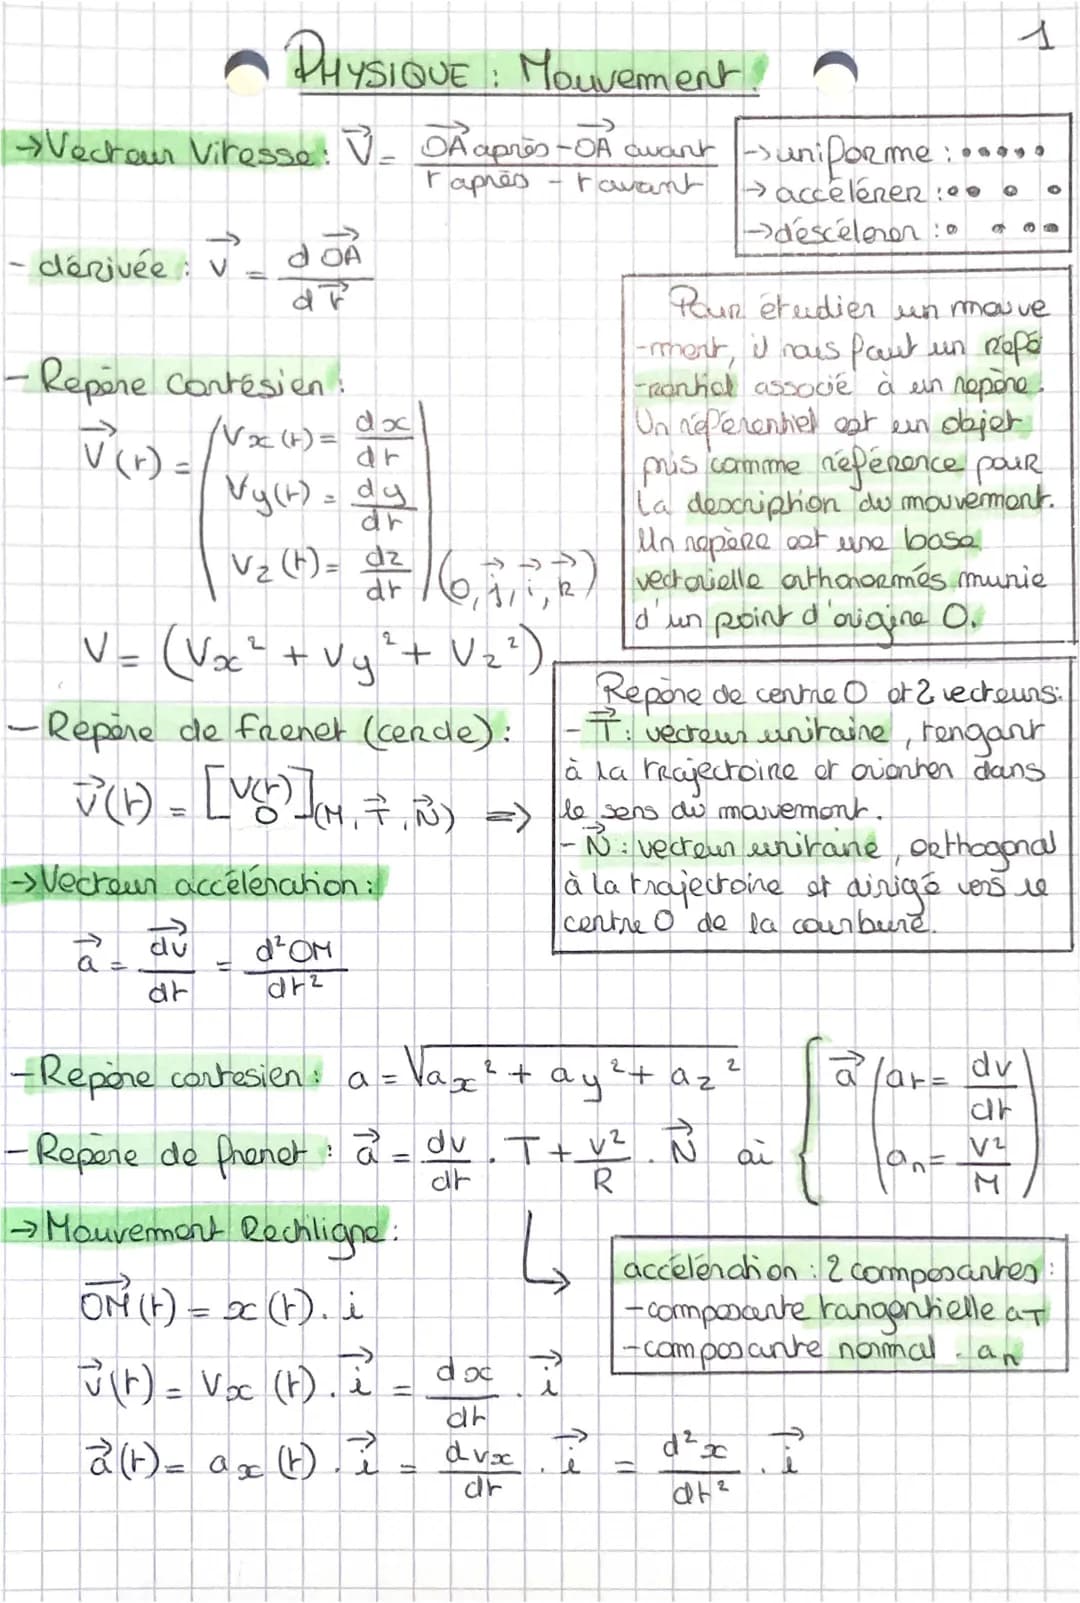 1
PHYSIQUE : Mouvement.
→Vecteur Vitesse : V⃗ = (OA⃗ après - OA⃗ avant) / (t après - t avant)
→uniforme : •••••
→accélérer : •• • •
→déscélerer : • • ••
- dérivée : v⃗ = d OA⃗ / d t⃗
Pour étudier un mouve
-ment, il nous faut un réfé
-rentiel associé à un repère.
Un référentiel est un objet
pris comme référence pour
la description du mouvement.
Un repère est une base
vectorielle orthonormés munie
d'un point d'origine O.
- Repère Cartésien :
V⃗(t) = ( Vx(t) = dx/dt
Vy(t) = dy/dt
Vz(t) = dz/dt ) (O, j⃗, i⃗, k⃗)
V = (Vx² + Vy² + Vz²)
- Repère de Frenet (cercle) :
v⃗(t) = [V(t) 0] (M, T⃗, N⃗) =>
Repère de centre O et 2 vecteurs:
- T⃗ : vecteur unitaire, tengant
à la trajectoire et orienter dans
le sens du mouvement.
- N⃗ : vecteur unitaire, orthogonal
à la trajectoire et dirigé vers le
centre O de la courbure.
→Vecteur accélération :
a⃗ = dv⃗/dt = d²OM/dt²
- Repère cartesien : a = √(ax² + ay² + az²)
{ a⃗ ( at = dv/dt
an = V²/M )
- Repère de frenet : a⃗ = dv/dt . T + v²/R . N⃗ où
→Mouvement Rectiligne :
OM⃗(t) = x(t). i
v⃗(t) = Vx(t). i⃗ = dx/dt . i⃗
a⃗(t) = ax(t). i⃗ = dvx/dt . i⃗ = d²x/dt² . i⃗
accélération : 2 composantes :
- composante tangentielle aT
- composante normal . an